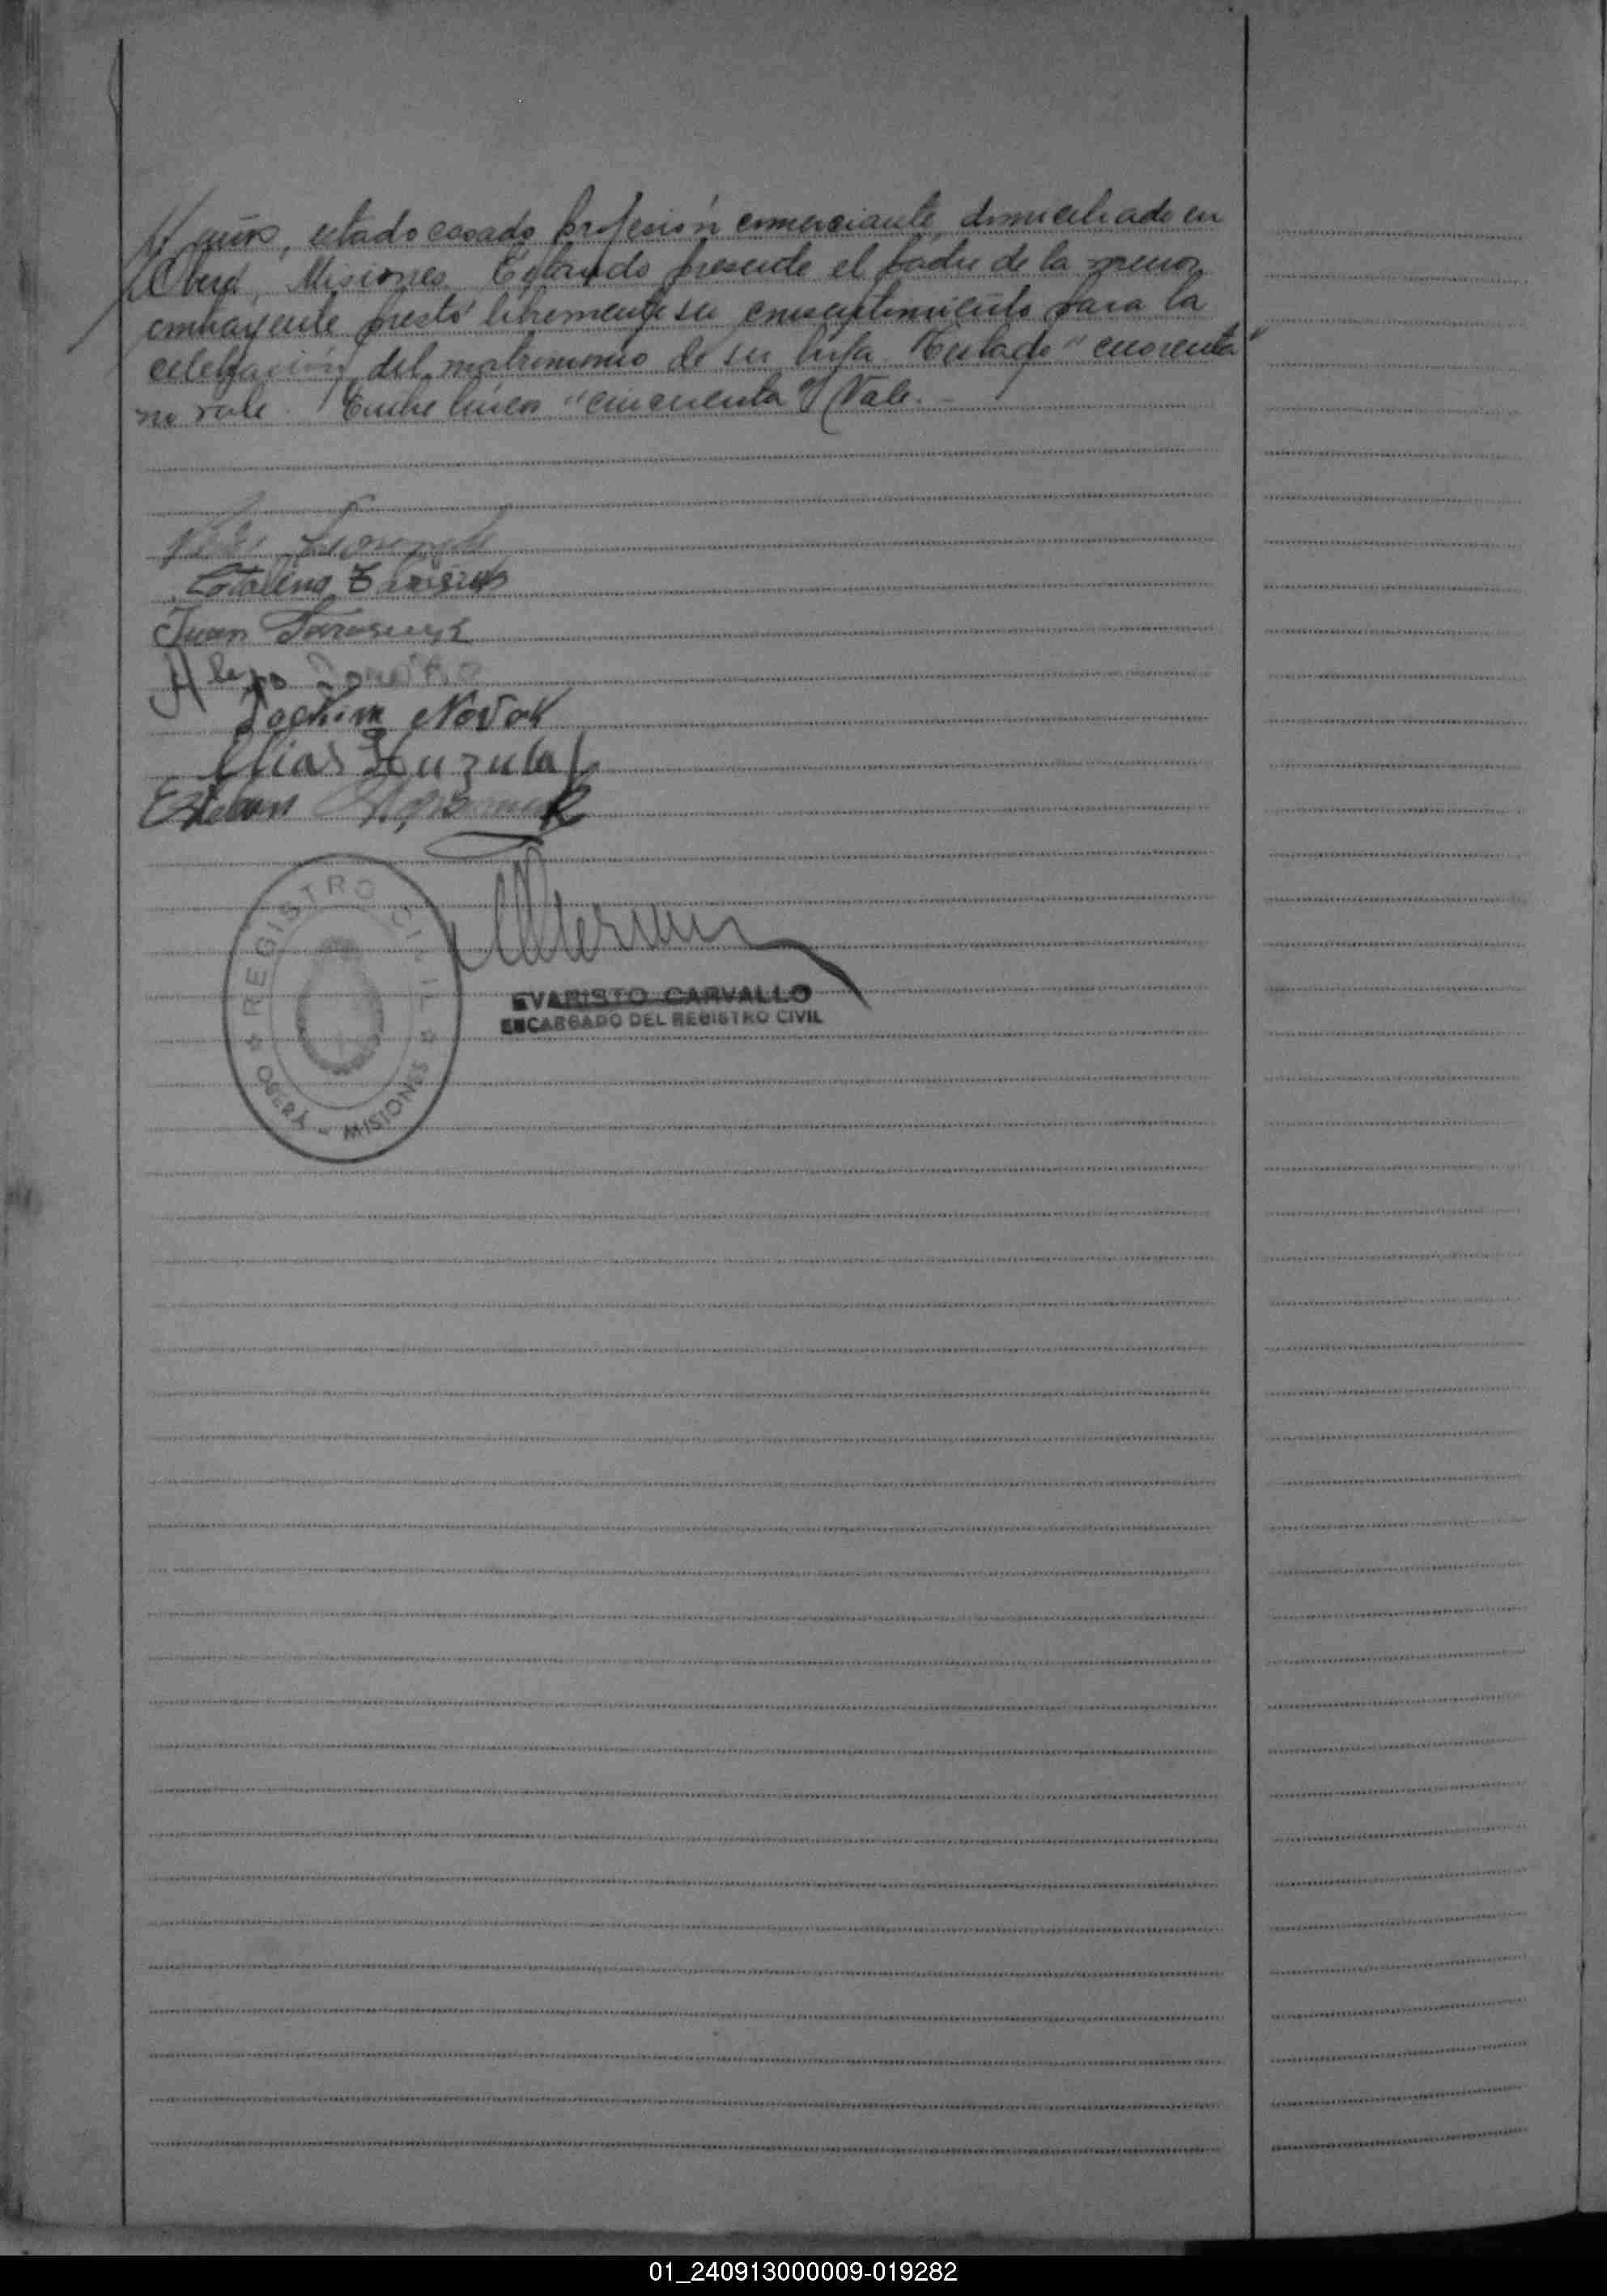 años, estado casado profesión comerciante, domiciliado en
Oberá, Misiones. Estando presente el padre de la menor
contrayente prestó libremente su consentimiento para la
celebración del matrimonio de su hija. Testado "cuarenta"
no vale. Entre líneas "cincuenta" Vale.-
Catalina
Juan Tarasiuk
Jochim Novok
Elias Huzulak
Esteban
REGISTRO CIVIL
OBERÁ - MISIONES
EVARISTO CARVALLO
ENCARGADO DEL REGISTRO CIVIL
01_240913000009-019282